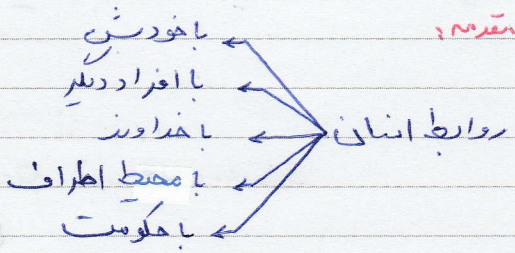 مقدمه:
روابط انسان
با خودش
با افراد دیگر
با خداوند
با محیط اطراف
با حکومت